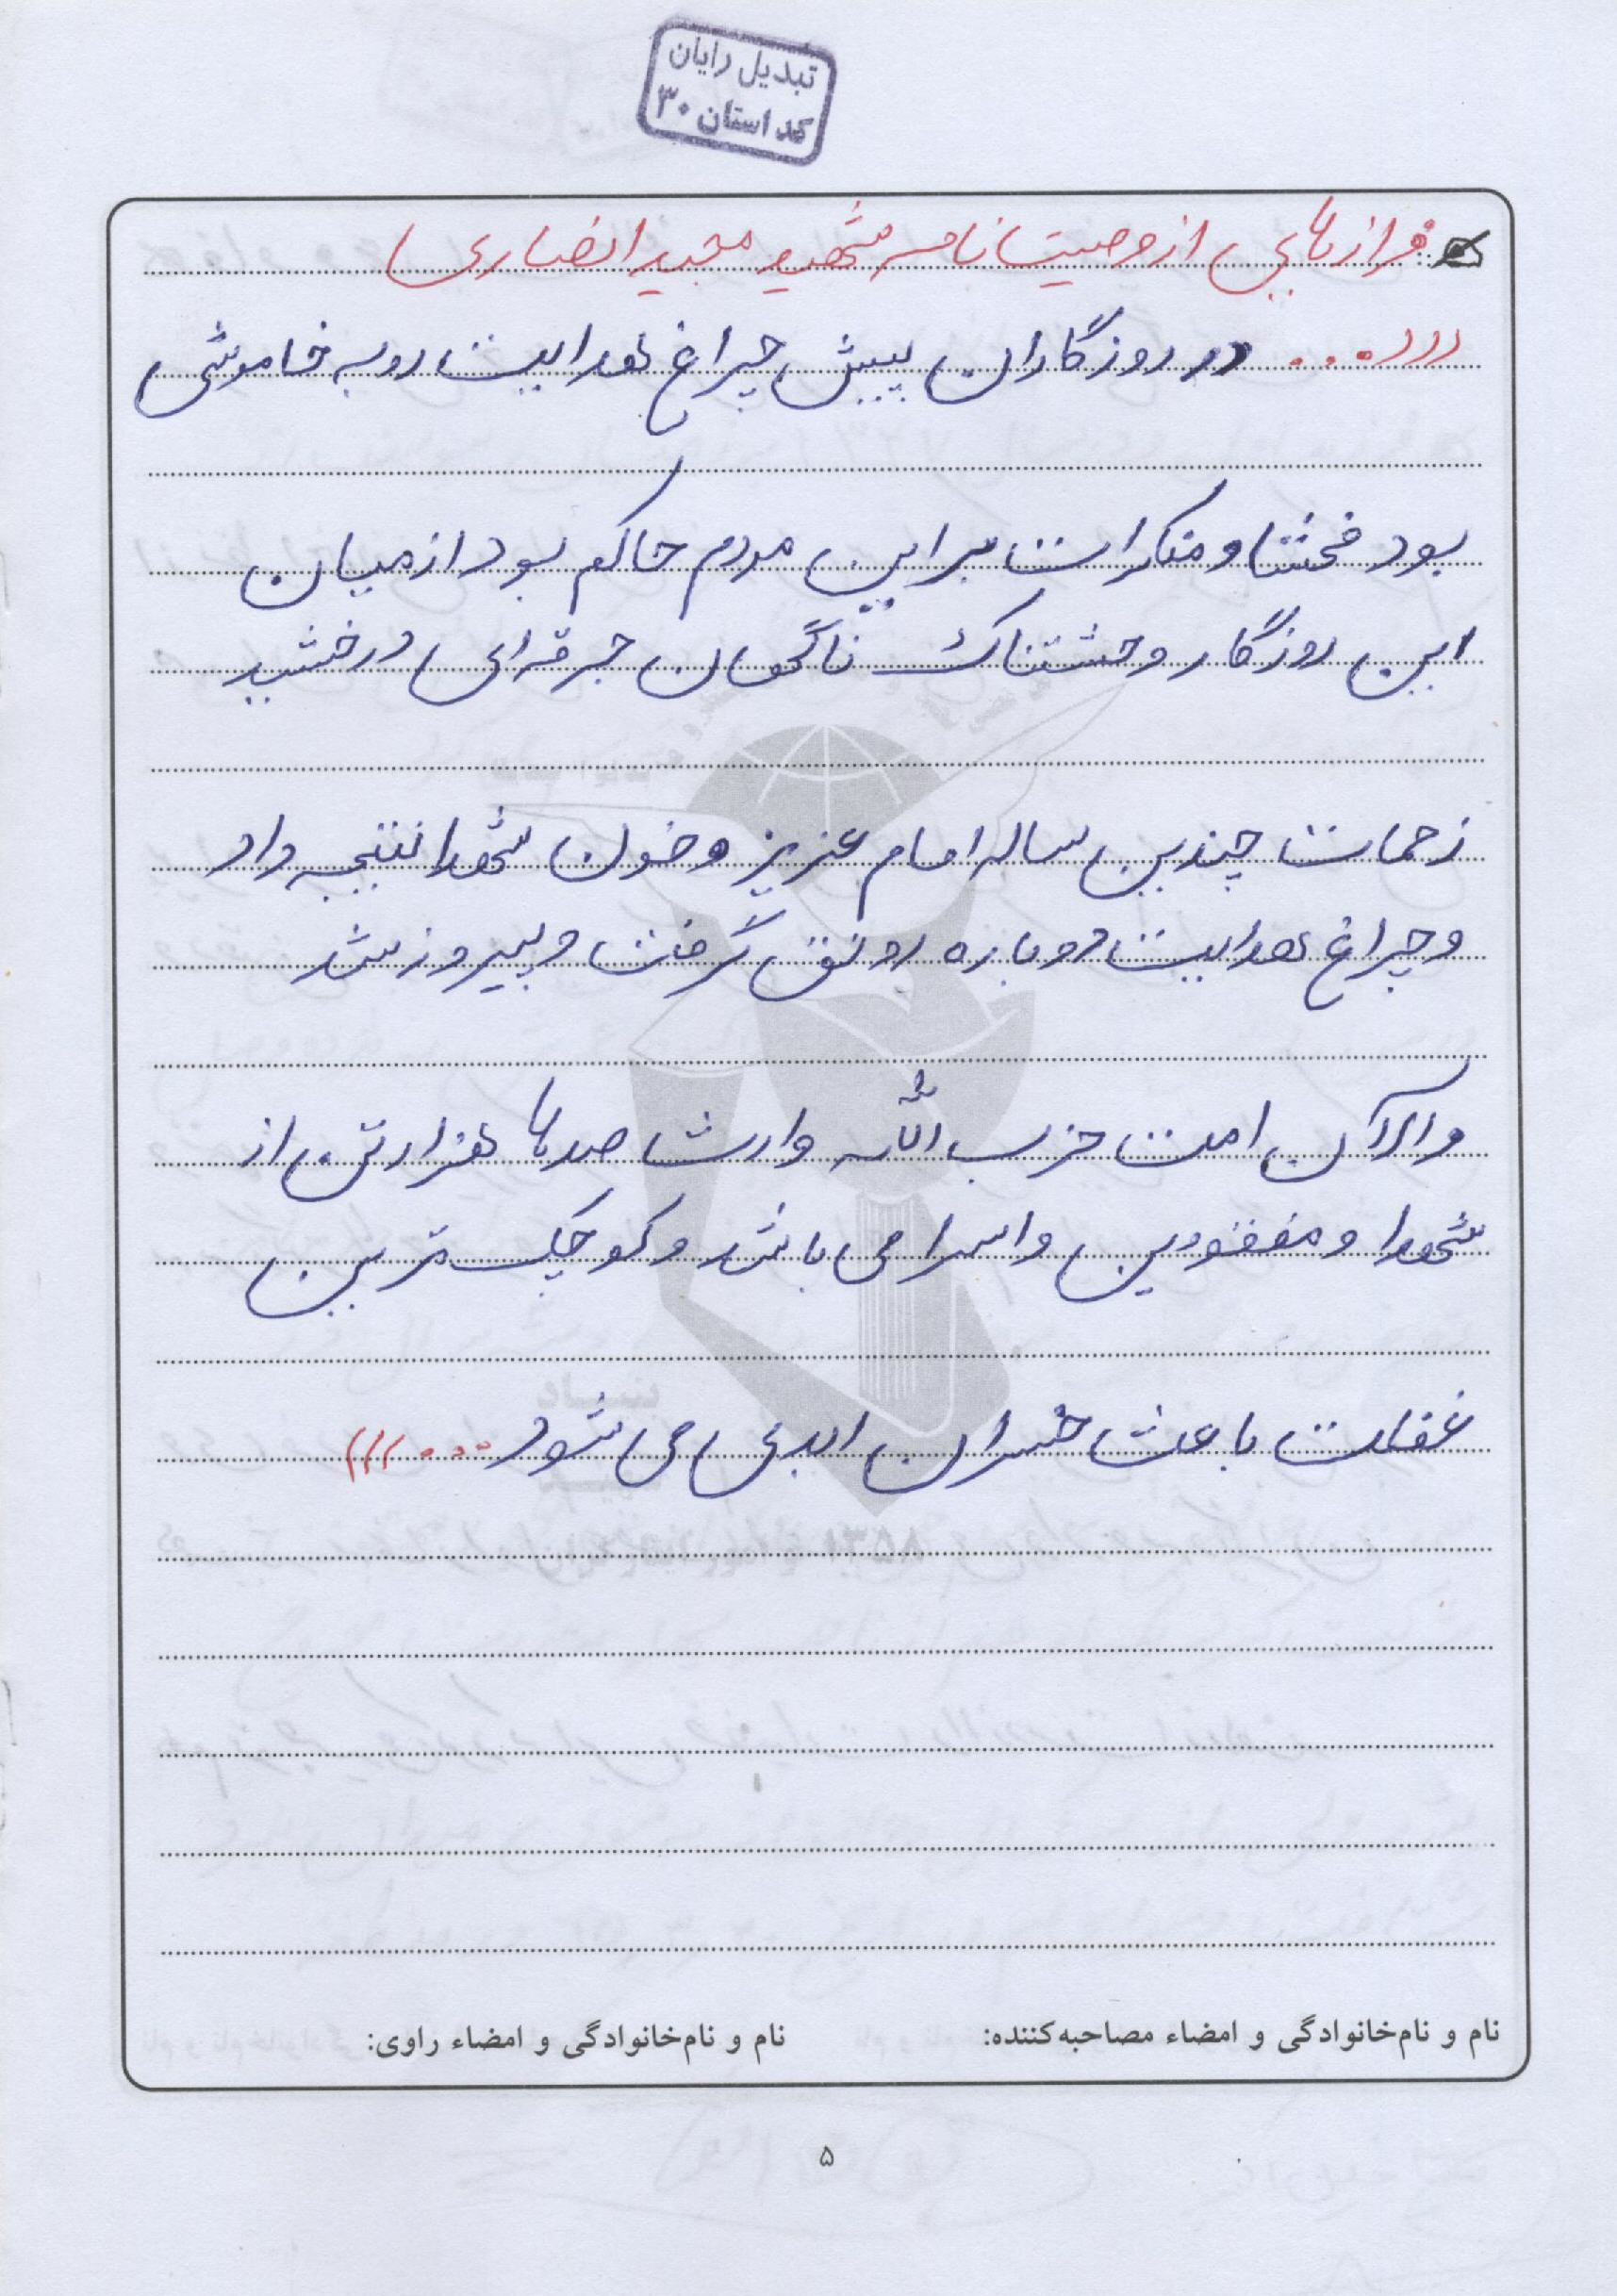 تبدیل رایان
کد استان ۳۰
فرازهایی از وصیت نامه شهید مجید انصاری
(((... در روزگاران پیش چراغ هدایت رو به خاموشی
بود فحشا و منکرات بر این مردم حاکم بود از میان
این روزگار وحشتناک ناگهان جرقه ای درخشید
زحمات چندین ساله امام عزیز و خون شهدا نتیجه داد
و چراغ هدایت دوباره رونق گرفت و پیروز شد
و الآن امت حزب الله وارث صدها هزار تن از
شهدا و مفقودین و اسرا می باشد و کوچک ترین
غفلت باعث خسران ابدی می شود ...)))
نام و نام‌خانوادگی و امضاء مصاحبه‌کننده:
نام و نام‌خانوادگی و امضاء راوی:
۵